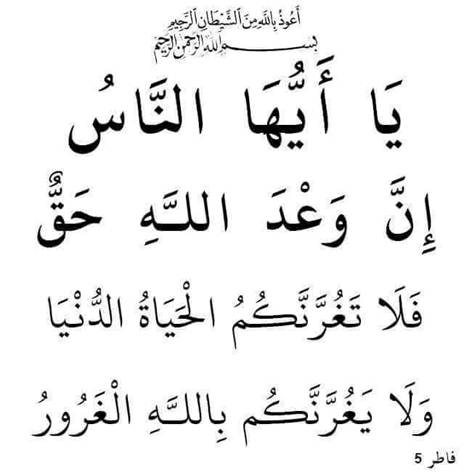 أعوذ بالله من الشيطان الرجيم
بسم الله الرحمن الرحيم
يَا أَيُّهَا النَّاسُ
إِنَّ وَعْدَ اللَّهِ حَقٌّ
فَلَا تَغُرَّنَّكُمُ الْحَيَاةُ الدُّنْيَا
وَلَا يَغُرَّنَّكُم بِاللَّهِ الْغَرُورُ
فاطر 5